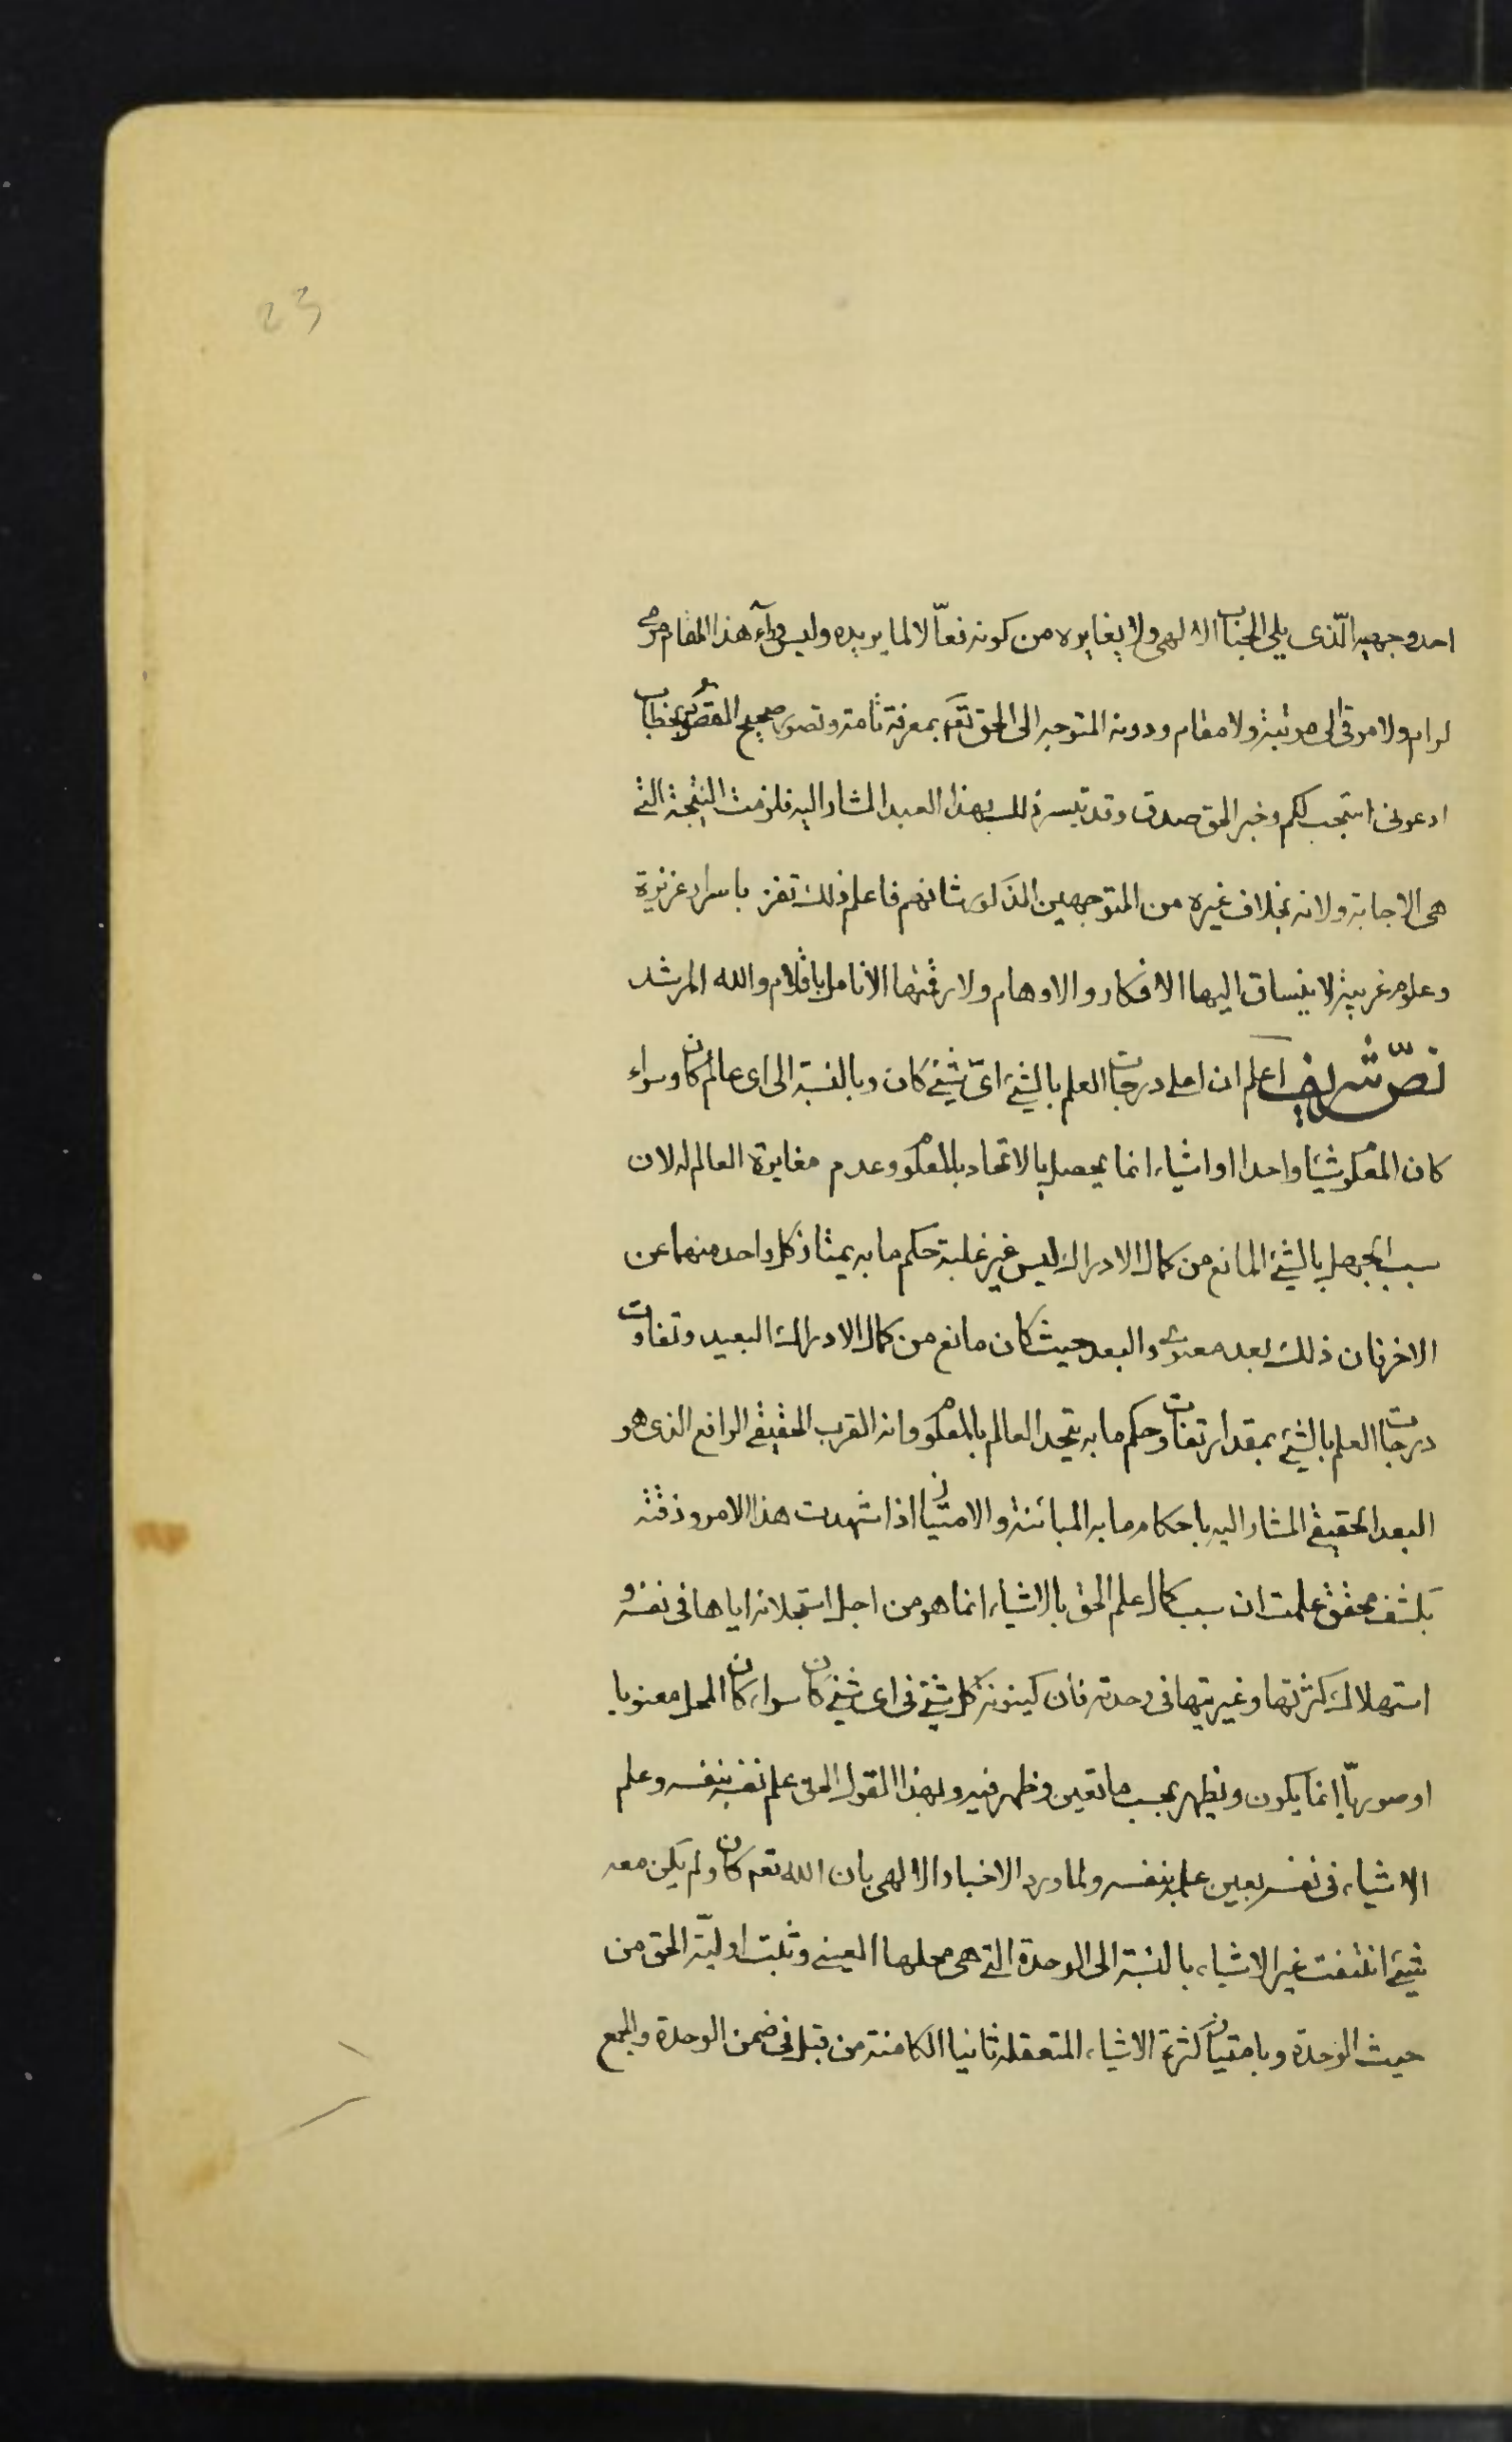 23
احد وجهيه الّذى يلى الجناب الالهى ولا يغايره من كونه فعّالا لما يريده وليس ورآء هذا المقام مرمى
لرام ولا مرقى الى مرتبة ولا مقام ودونه المتوجه الى الحق تعم بمعرفة تامة وتصور صحيح المقصود بخطاب
ادعونى استجب لكم وخبر الحق صدق وقد تيسر ذلك لهذا العبد المشار اليه فلزمت النتيجة التى
هى الاجابة ولانه بخلاف غيره من المتوجهين المذكور شانهم فاعلم ذلك تفز باسرار عزيزة
وعلوم غريبة لا ينساق اليها الافكار والاوهام ولا رقمتها الانامل باقلام والله المرشد
نصّ شريف اعلم ان اعلى درجات العلم بالشئ اىّ شئ كان وبالنسبة الى اى عالم كان وسواء
كان المعلوم شيئا واحدا او اشياء انما يحصل بالاتحاد بالمعلوم وعدم مغايرة العالم له لان
سبب الجهل بالشئ المانع من كمال الادراك ليس غير غلبة حكم ما به يمتاز كل واحد منهما عن
الاخر فان ذلك بعد معنوى والبعد حيث كان مانع من كمال الادراك البعيد وتفاوت
درجات العلم بالشئ بمقدار تفاوت حكم ما به يتحد العالم بالمعلوم وانه القرب الحقيقى الرافع الذى هو
البعد الحقيقى المشار اليه باحكام ما به المباينة والامتياز اذا شهدت هذا الامر وذقته
بكشف محقق علمت ان سبب كمال علم الحق بالاشياء انما هو من اجل استجلائه اياها فى نفسه و
استهلاك كثرتها وغيريتها فى وحدته فان كينونة كل شئ فى اى شئ كان سواء كان المحل معنويا
او صوريّا انما يكون ويظهر بحسب ما تعين وظهر فيه ولهذا القول الحق علم نفسه بنفسه وعلم
الاشياء فى نفسه بعين علمه بنفسه ولما ورد الاخبار الالهى بان الله تعم كان ولم يكن معه
شئ انتفت غير الاشياء بالنسبة الى الوحدة التى هى محلها العينى وثبت اوليّة الحق من
حيث الوحدة وبامتياز كثرة الاشياء المتعقلة ثانيا الكامنة من قبل فى ضمن الوحدة والجمع